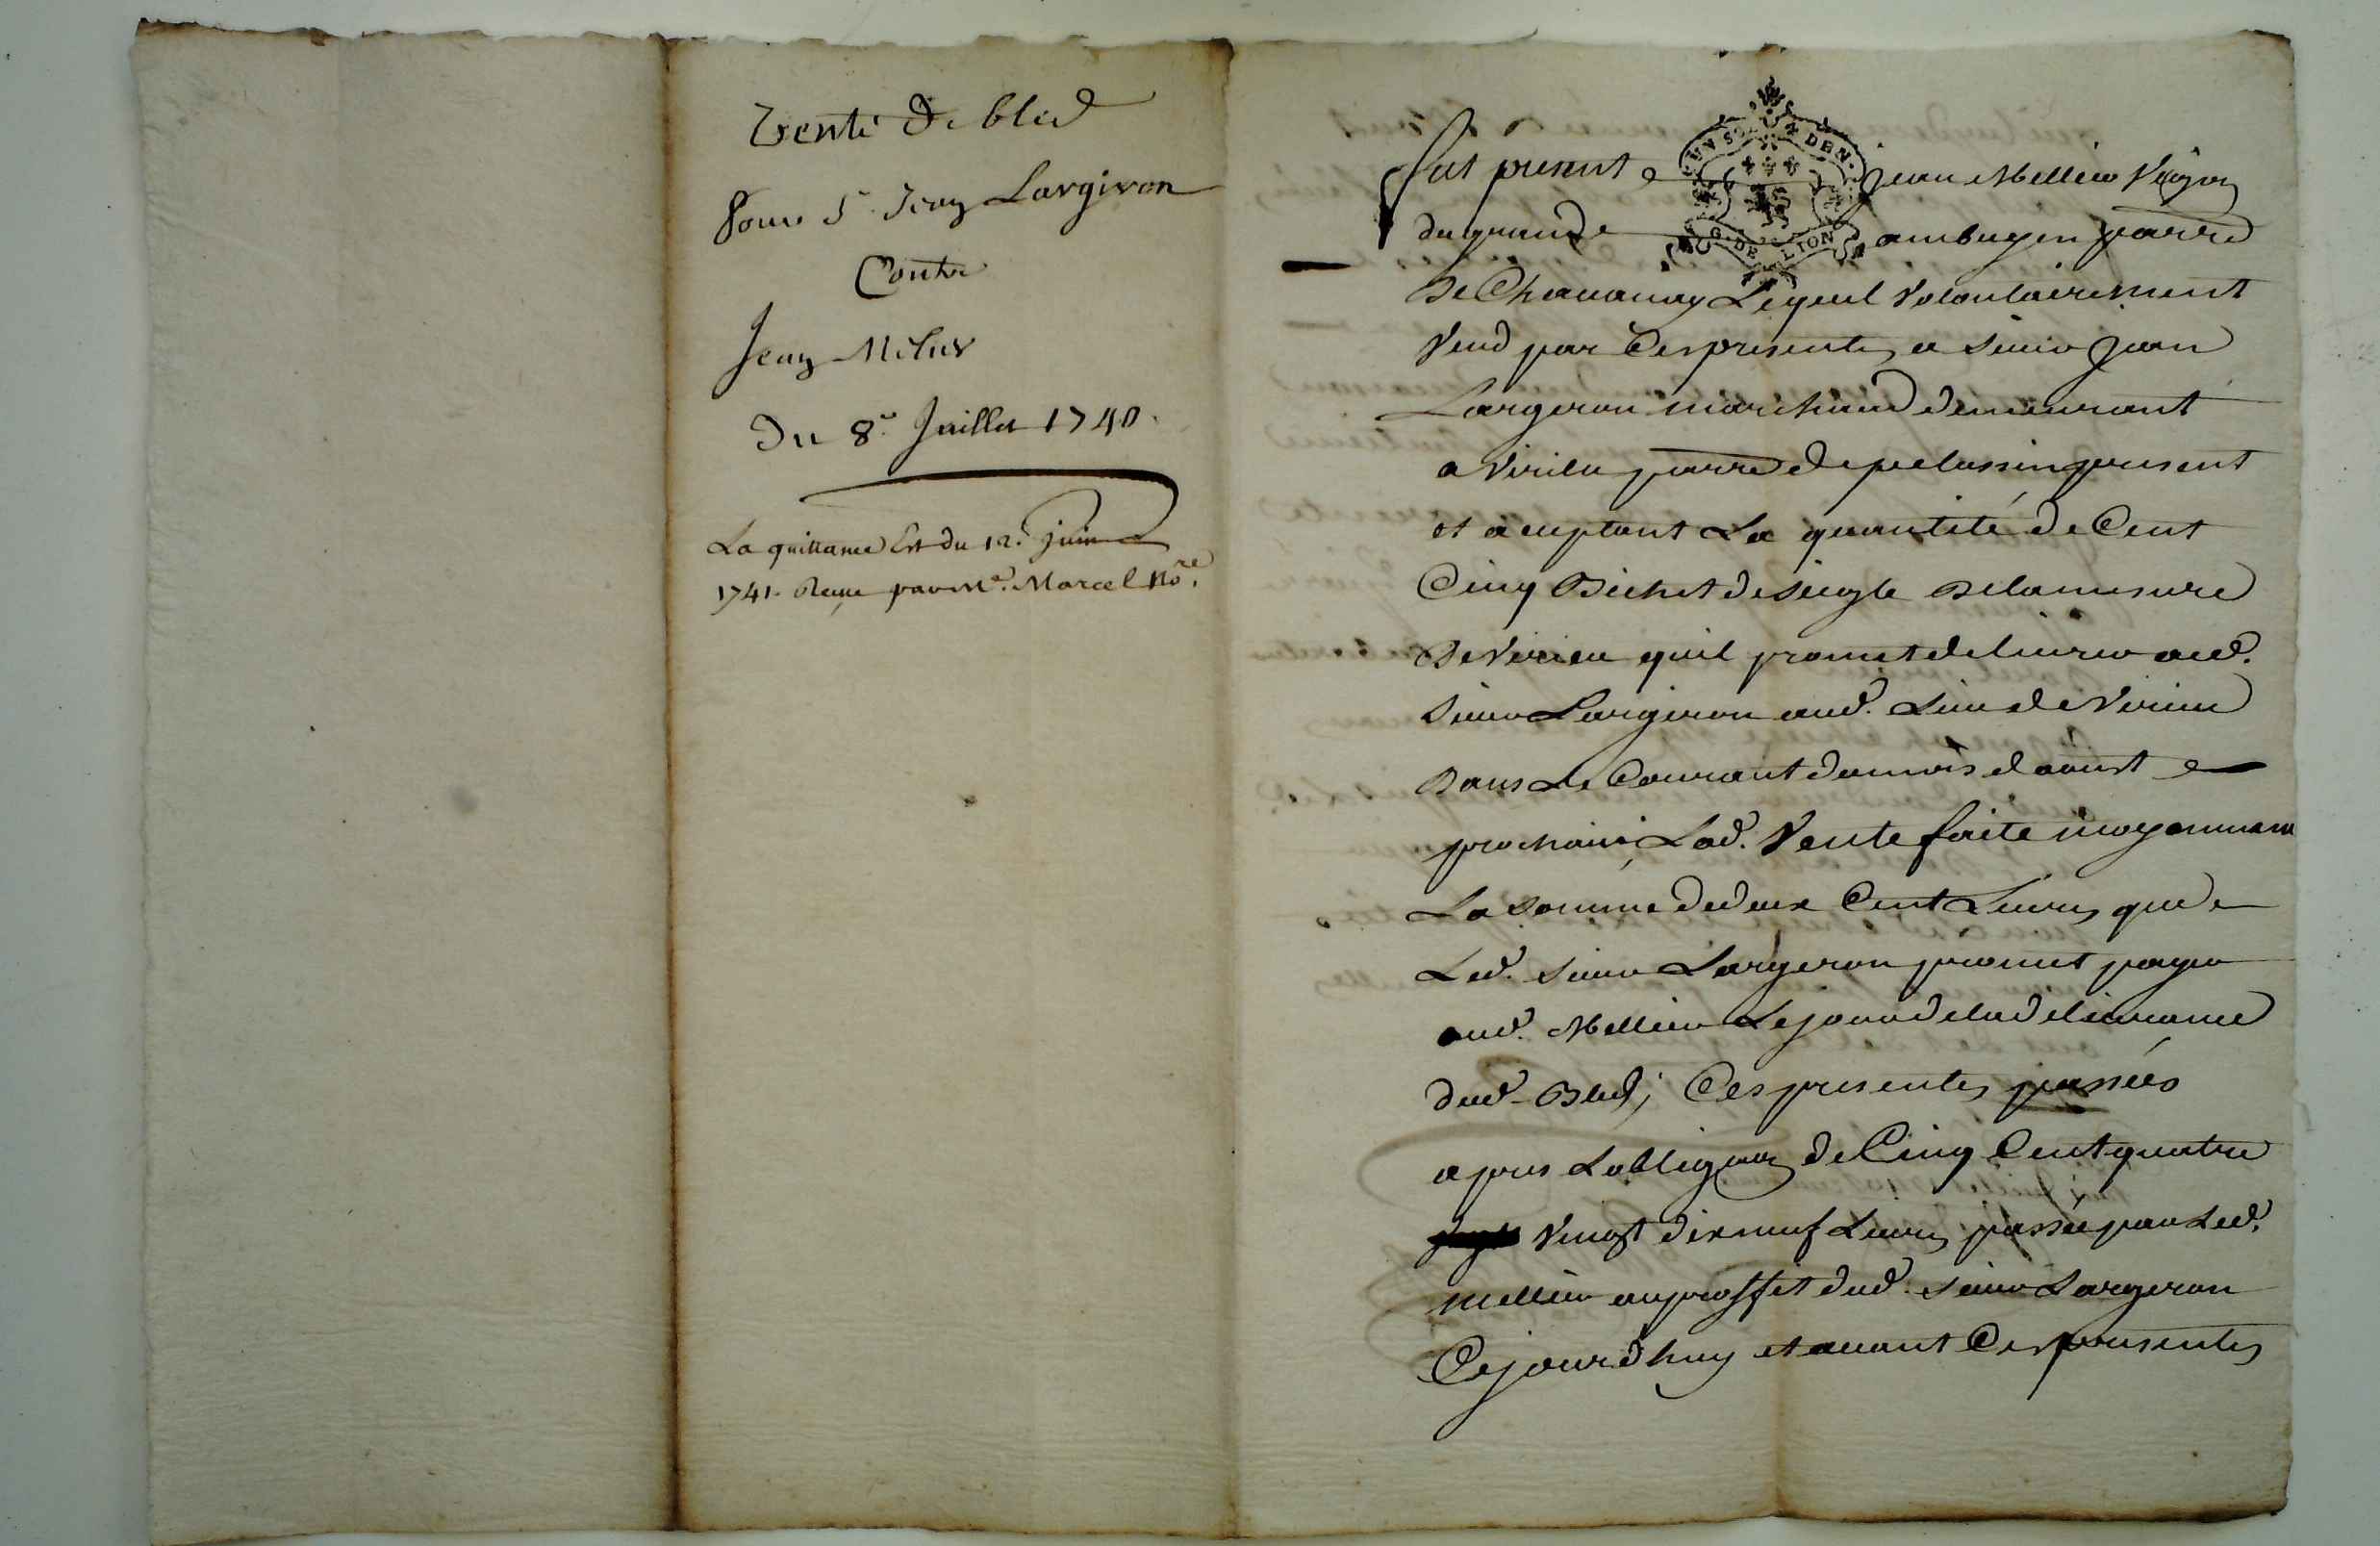 Vente de bled
Pour Sr. Jean Largeron
Contre
Jean Melier
Du 8e. Juillet 1740.
La quittance Est du 12e. juin
1741. Reçue par Me. Marcel Nore.
UN SOL DEN.
G. DE LION
fut present jean Mellier Vigon
du grand ambuyen parre
De Chauanay Lequel Volontairement
Vend par Ces presentes a sieur jean
Largeron marchand demeurant
a Virieu parre de pelussin present
et aceptant La quantité de Cent
Cinq Bichet de seigle De la mesure
De Virieu quil promet de livrer aud.
Sieur Largeron aud. Lieu de Virieu
Dans Le Courant du mois daoust
prochain, Lad. Vente faite moyennant
La somme de deux Cent Livres que
Led. sieur Largeron promet payer
aud. Mellier Le jour de la delivrance
dud. Bled; Ces presentes passées
apres Lobligaon de Cinq Cent quatre
Vingt dix neuf Livres passée par Led.
mellier au proffit dud. sieur Largeron
Cejourdhuy et auant Ces presentes